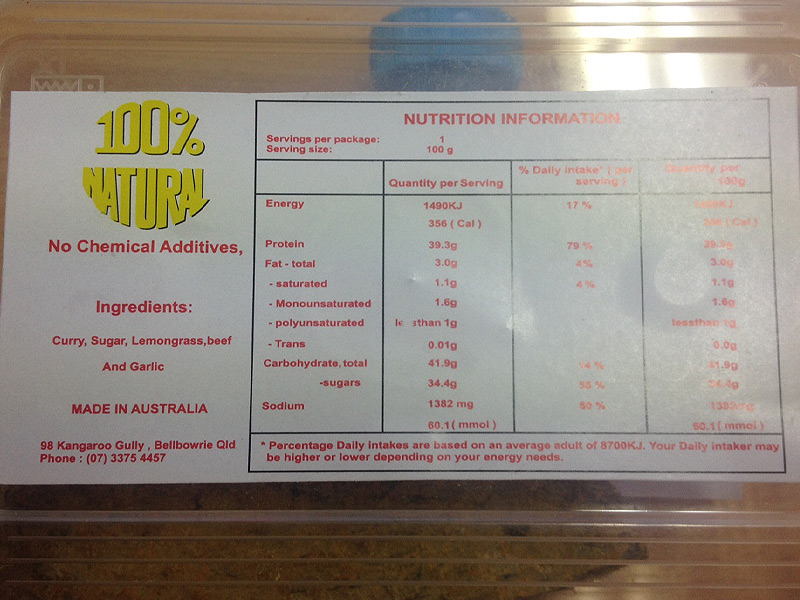 100%
NATURAL
No Chemical Additives,
Ingredients:
Curry, Sugar, Lemongrass,beef
And Garlic
MADE IN AUSTRALIA
98 Kangaroo Gully , Bellbowrie Qld
Phone : (07) 3375 4457
NUTRITION INFORMATION
Servings per package: 1
Serving size: 100 g
Quantity per Serving % Daily intake* ( per serving ) Quantity per 100g
Energy 1490KJ 17 %
356 ( Cal ) ( Cal )
Protein 39.3g 79 % 39.3g
Fat - total 3.0g 4% 3.0g
- saturated 1.1g 4 % 1.1g
- Monounsaturated 1.6g 1.6g
- polyunsaturated lessthan 1g lessthan 1g
- Trans 0.01g 0.0g
Carbohydrate, total 41.9g 41.9g
-sugars 34.4g 34.4g
Sodium 1382 mg 60 %
60.1( mmol ) 60.1( mmol )
* Percentage Daily intakes are based on an average adult of 8700KJ. Your Daily intaker may
be higher or lower depending on your energy needs.